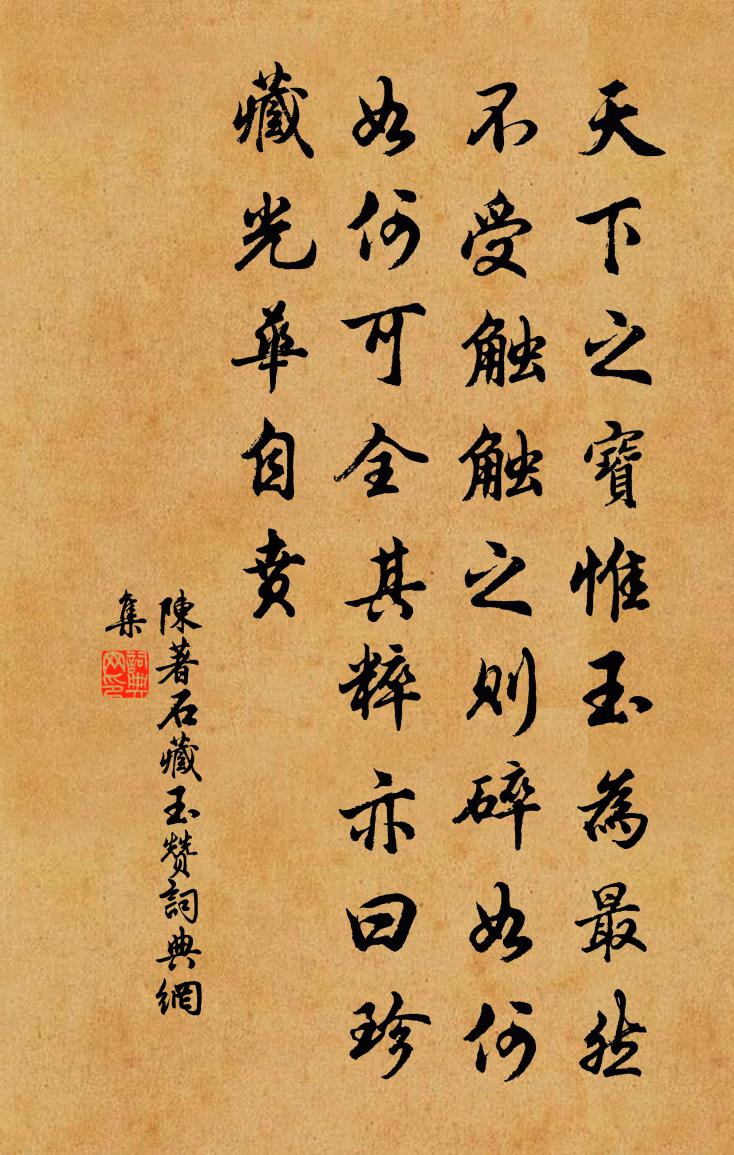 天下之寶惟玉為最然
不受触触之则碎如何
如何可全其粹亦曰珍
藏光華自賁
陳著石藏玉赞詞典網
集
詞典网印